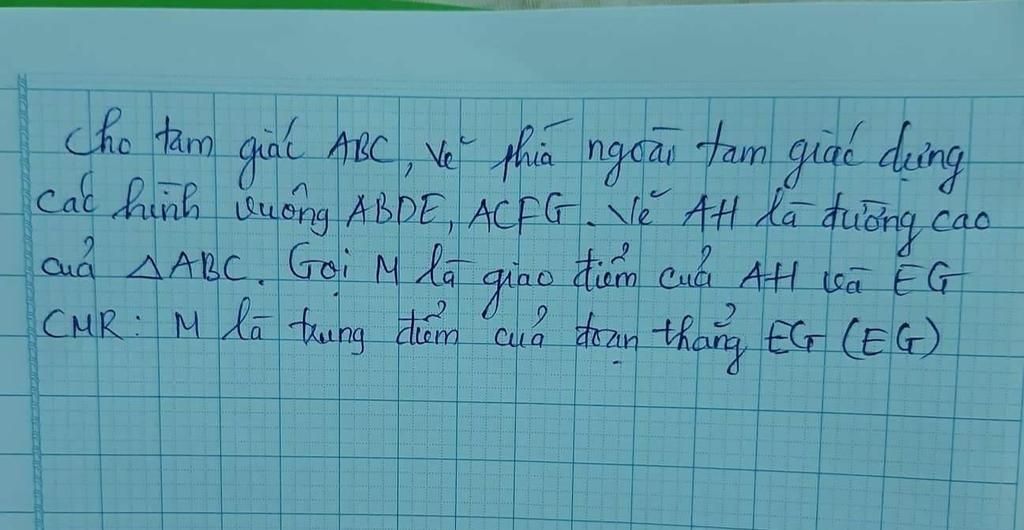 Cho tam giác ABC, về phía ngoài tam giác dựng
các hình vuông ABDE, ACFG. Vẽ AH là đường cao
của △ABC. Gọi M là giao điểm của AH và EG
CMR: M là trung điểm của đoạn thẳng EG (EG)